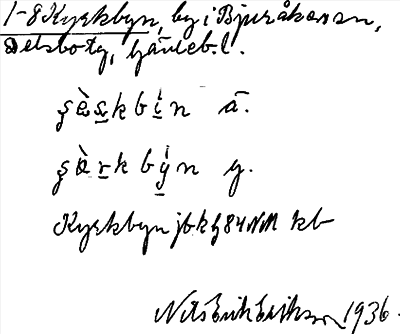 1-8 Kyrkbyn, by i Bjuråkers sn,
Delsbo tg, Gävleb. l.
şὰşkbìn ä.
şὰrkbyn y.
Kyrkbyn jbkg 84 NM kb
Nils Erik Eriksson 1936.